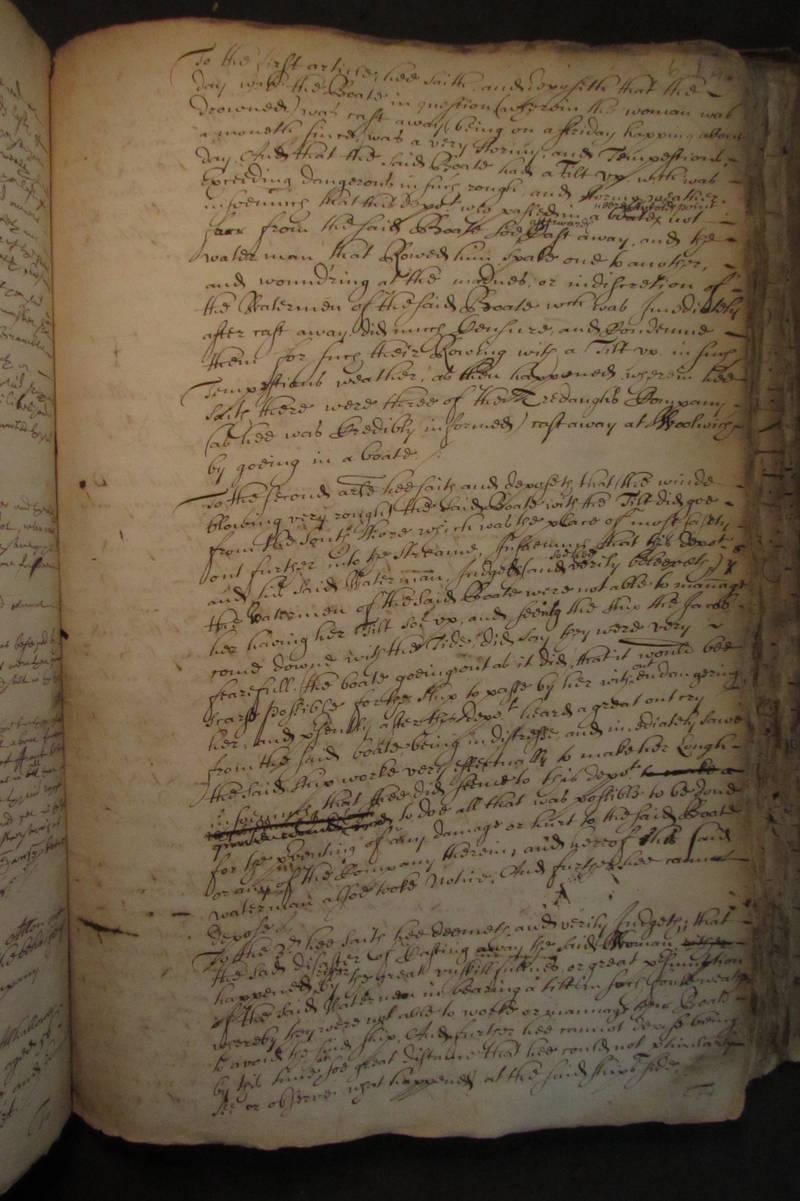 To the first article hee saith and deposeth that the
day when the Boate in question (wherein the woman was
drowned) was cast away (being on a ffriday happing about
a moneth since) was a very stormy, and Tempestious
day And that the said Boate had a Tilt vp, which was
Exceeding dangerous in such rough and stormy weather
insoemuch that this depot who passed in a boate not
farr from the said Boate soe afterwards Cast away, and the
waterman that Rowed him spake one to another,
and wound'ring at the madnes, or indiscretion of
the Watermen of the said Boate wch was Imediately
after cast away did much Censure, and Condemne
them for such their Rowing with a Tilt vp in such
Tempestious weather, as then happened, wherein hee
saith there were three of the Company
(as hee was Credibly informed) cast away at Woolwich
by goeing in a boate./
To the second arle hee saith and deposeth that the winde
blowing very rough the said Boate with the Tilt did goe
from the South shore which was the place of most safety
out further into the streame, Insoemuch that this depot
and his said Waterman Judged (and verily beleeved)
the Watermen of the said Boate were not able to mannage
her having her Tilt set vp, and seeing the ship the Jacob
come downe with the Tide, did say they were very
fearefull (the boate goeing out as it did, that it would bee
scarse possible for the ship to passe by her without endangering
her, and presently after this depot heard a great out cry
from the said boate being in distresse, and imediately sawe
the said ship worke very effectually to make her
insoemuch that shee did seeme to this depot
to doe all that was possible to be done
for the preventing of any damage or hurt to the said Boate
or any of the Company therein, and hereof this said
waterman alsoe tooke Notice, And further hee cannot
depose./
To the 3d hee saith hee deemeth and verily Judgeth, that
the sad disaster of Casting away the said Woman
happened by the great vnskillfullnes, or great presumption
of the said Watermen in bearing a tilt in such foule weather
whereby they were not able to worke or mannage their Boate
to avoid the said ship. And further hee cannot depose being
by this time soe great distance that hee could not perticularly
see or observe what happened at the said ships side./